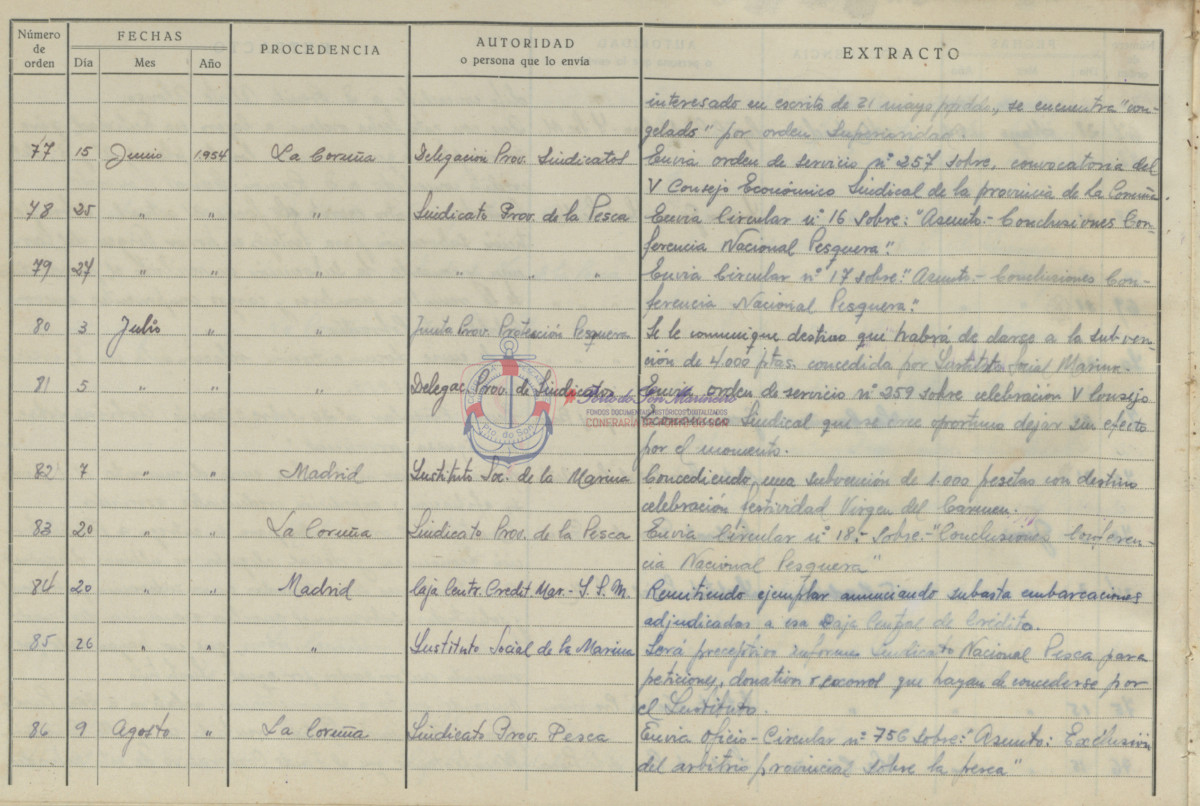 Número de orden FECHAS PROCEDENCIA AUTORIDAD o persona que lo envía EXTRACTO
Día Mes Año
interesado en escrito de 21 mayo ppdo., se encuentra "con-
gelado" por orden Superioridad.
77 15 Junio 1.954 La Coruña Delegación Prov. Sindicatos Envia orden de servicio nº 257 sobre, convocatoria del
V Consejo Económico Sindical de la provincia de La Coruña.
78 25 " " " Sindicato Prov. de la Pesca Envia Circular nº 16 sobre: "Asunto.- Conclusiones Con-
ferencia Nacional Pesquera".
79 27 " " " " " " Envia Circular nº 17 sobre: "Asunto.- Conclusiones Con-
ferencia Nacional Pesquera".
80 3 Julio " " Junta Prov. Protección Pesquera Se le comunique destino que habrá de darse a la subven-
ción de 4.000 ptas. concedida por Instituto Social Marina.
81 5 " " " Delegac. Prov. de Sindicatos Envia orden de servicio nº 259 sobre celebración V Consejo
Económico Sindical que se cree oportuno dejar sin efecto
por el momento.
82 7 " " Madrid Instituto Soc. de la Marina Concediendo una subvención de 1.000 pesetas con destino
celebración festividad Virgen del Carmen.
83 20 " " La Coruña Sindicato Prov. de la Pesca Envia Circular nº 18.- sobre.- "Conclusiones Conferen-
cia Nacional Pesquera"
84 20 " " Madrid Caja Centr. Credit. Mar.- I. S. M. Remitiendo ejemplar anunciando subasta embarcaciones
adjudicadas a esa Caja Central de Crédito.
85 26 " " " Instituto Social de la Marina Será preceptivo informe Sindicato Nacional Pesca para
peticiones, donativo o que hayan de concederse por
el Instituto.
86 9 Agosto " La Coruña Sindicato Prov. Pesca Envia Oficio-Circular nº 756 sobre: "Asunto: Exclusión
del arbitrio provincial sobre la pesca"
Pto. do Son
FONDOS DOCUMENTAIS HISTÓRICOS DIXITALIZADOS
CONFRARÍA DE PORTO DO SON